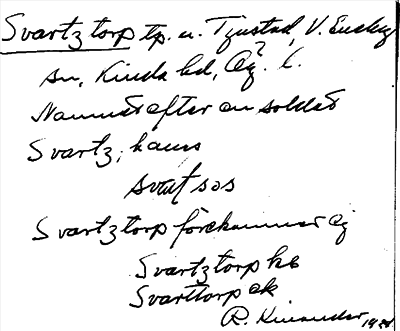 Svartztorp tp. u. Tjustad, V. Eneby
sn, Kinda hd, Ög. l.
Namnet efter en soldat
Svartz, hans
svat sos
Svartztorp förekommer ej
Svartztorp kb
Svarttorp ek
R. Kinander